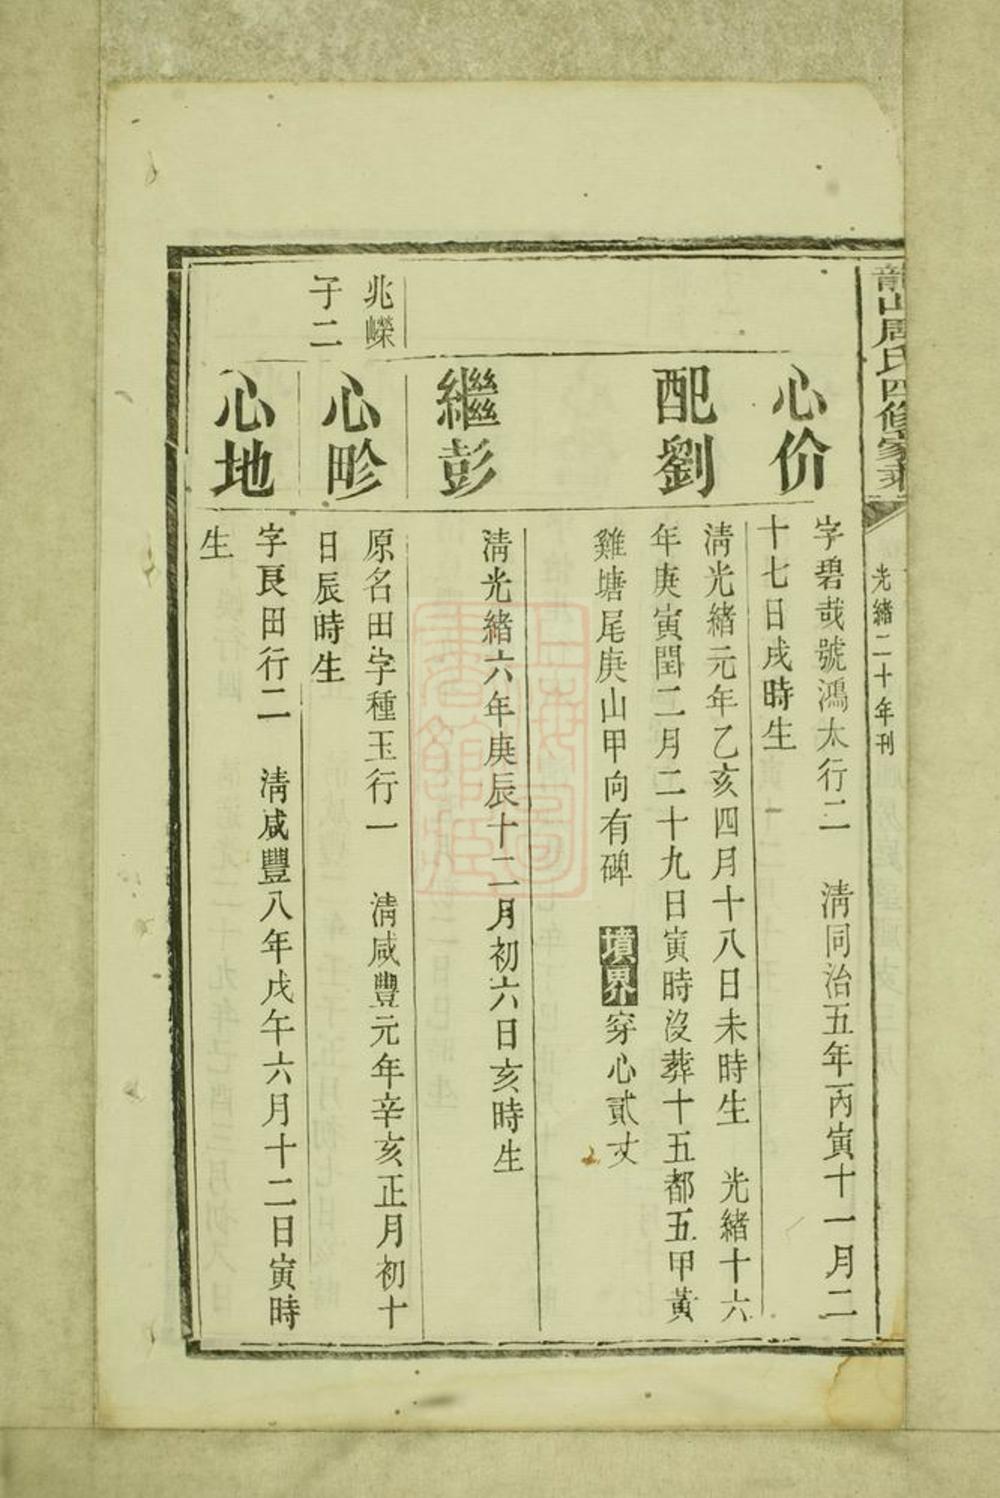 龍山周氏四修家乘
光緒二十年刊
心价
字碧哉號鴻太行二 清同治五年丙寅十一月二
十七日戌時生
配劉
清光緒元年乙亥四月十八日未時生 光緒十六
年庚寅閏二月二十九日寅時沒葬十五都五甲黃
雞塘尾庚山甲向有碑 墳界穿心貳丈
繼彭
清光緒六年庚辰十二月初六日亥時生
兆嶸
子二
心畛
原名田字種玉行一 清咸豐元年辛亥正月初十
日辰時生
心地
字艮田行二 清咸豐八年戊午六月十二日寅時
生